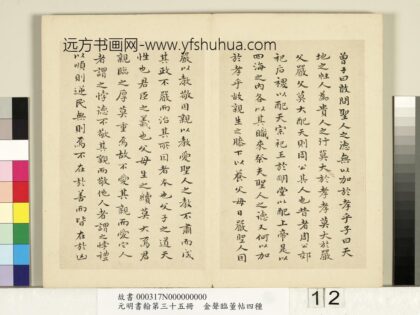 远方书画网-www.yfshuhua.com
曾子曰敢問聖人之德無以加於孝乎子曰天
地之性人為貴人之行莫大於孝孝莫大於嚴
父嚴父莫大於配天則周公其人也昔者周公郊
祀后稷以配天宗祀文王於明堂以配上帝是以
四海之內各以其職來祭夫聖人之德又何以加
於孝乎故親生之膝下以養父母日嚴聖人因
嚴以教敬因親以教愛聖人之教不肅而成
其政不嚴而治其所因者本也父子之道天
性也君臣之義也父母生之續莫大焉君
親臨之厚莫重焉故不愛其親而愛他人
者謂之悖德不敬其親而敬他人者謂之悖禮
以順則逆民無則焉不在於善而皆在於凶
故書 000317N000000000
元明書翰第三十五冊 金聲臨董帖四種
12